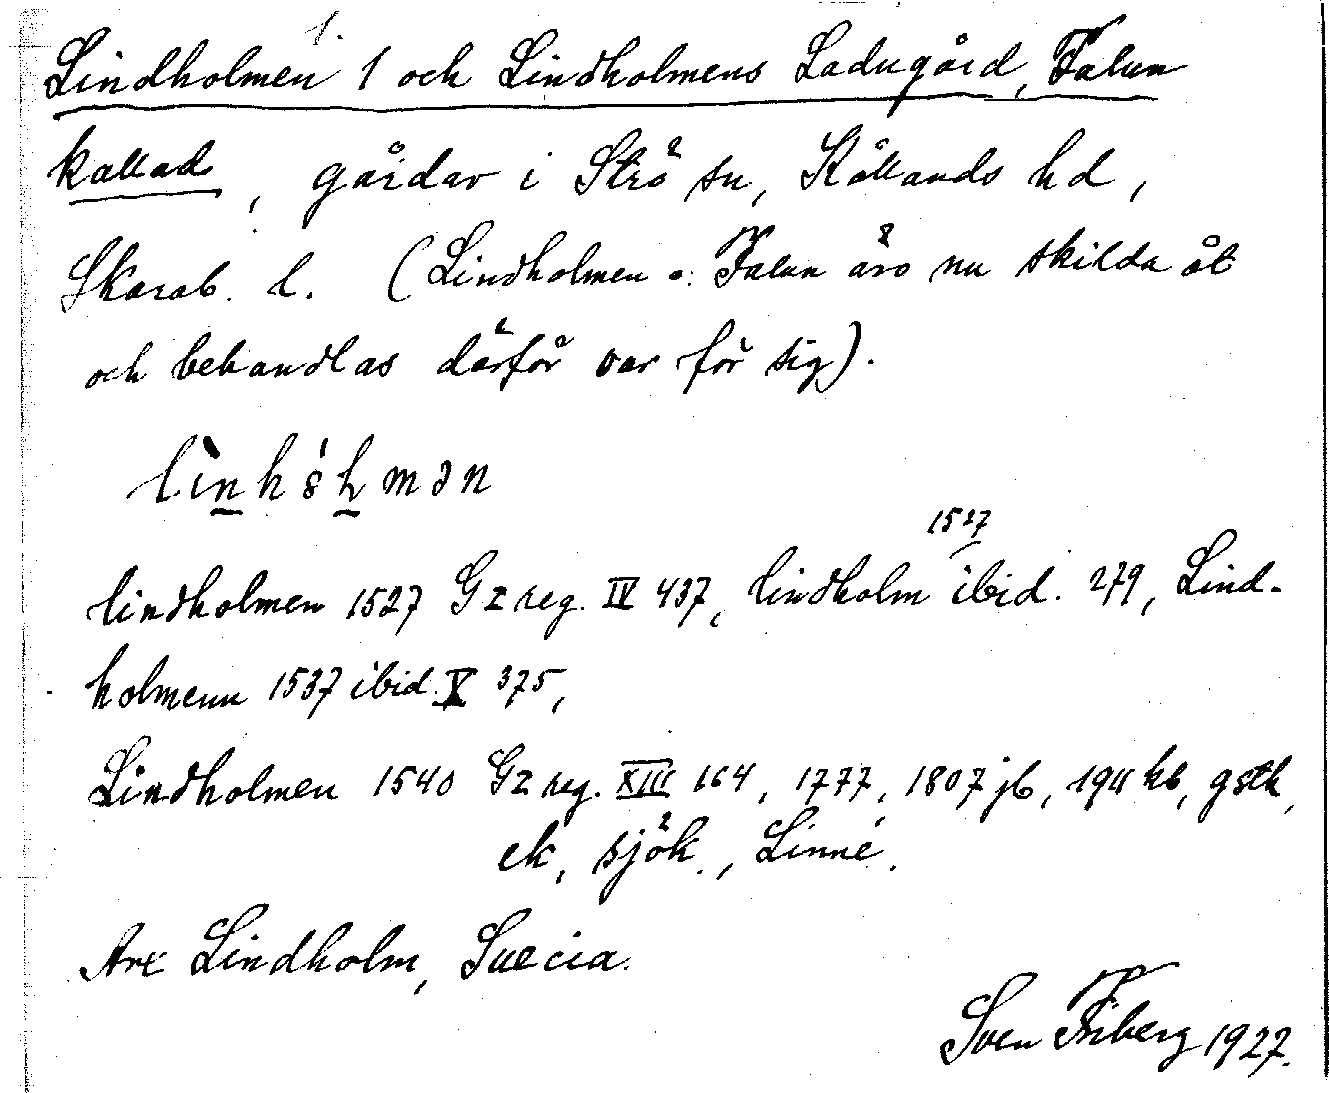 1.
Lindholmen 1 och Lindholmens Ladugård, Falan
kallad, gårdar i Strö sn, Kållands hd,
Skarab. l. (Lindholmen o. Falan äro nu skilda åt
och behandlas därför var för sig).
lindholmen 1527 G I reg. IV 437, lindholm 1527 ibid. 279, Lind-
holmenn 1537 ibid. X 375,
Lindholmen 1540 G I reg. XIII 164, 1777, 1807 jb, 1911 kb, gstk,
ek, sjök., Linné.
Arx Lindholm, Suecia.
Sven Friberg 1927.